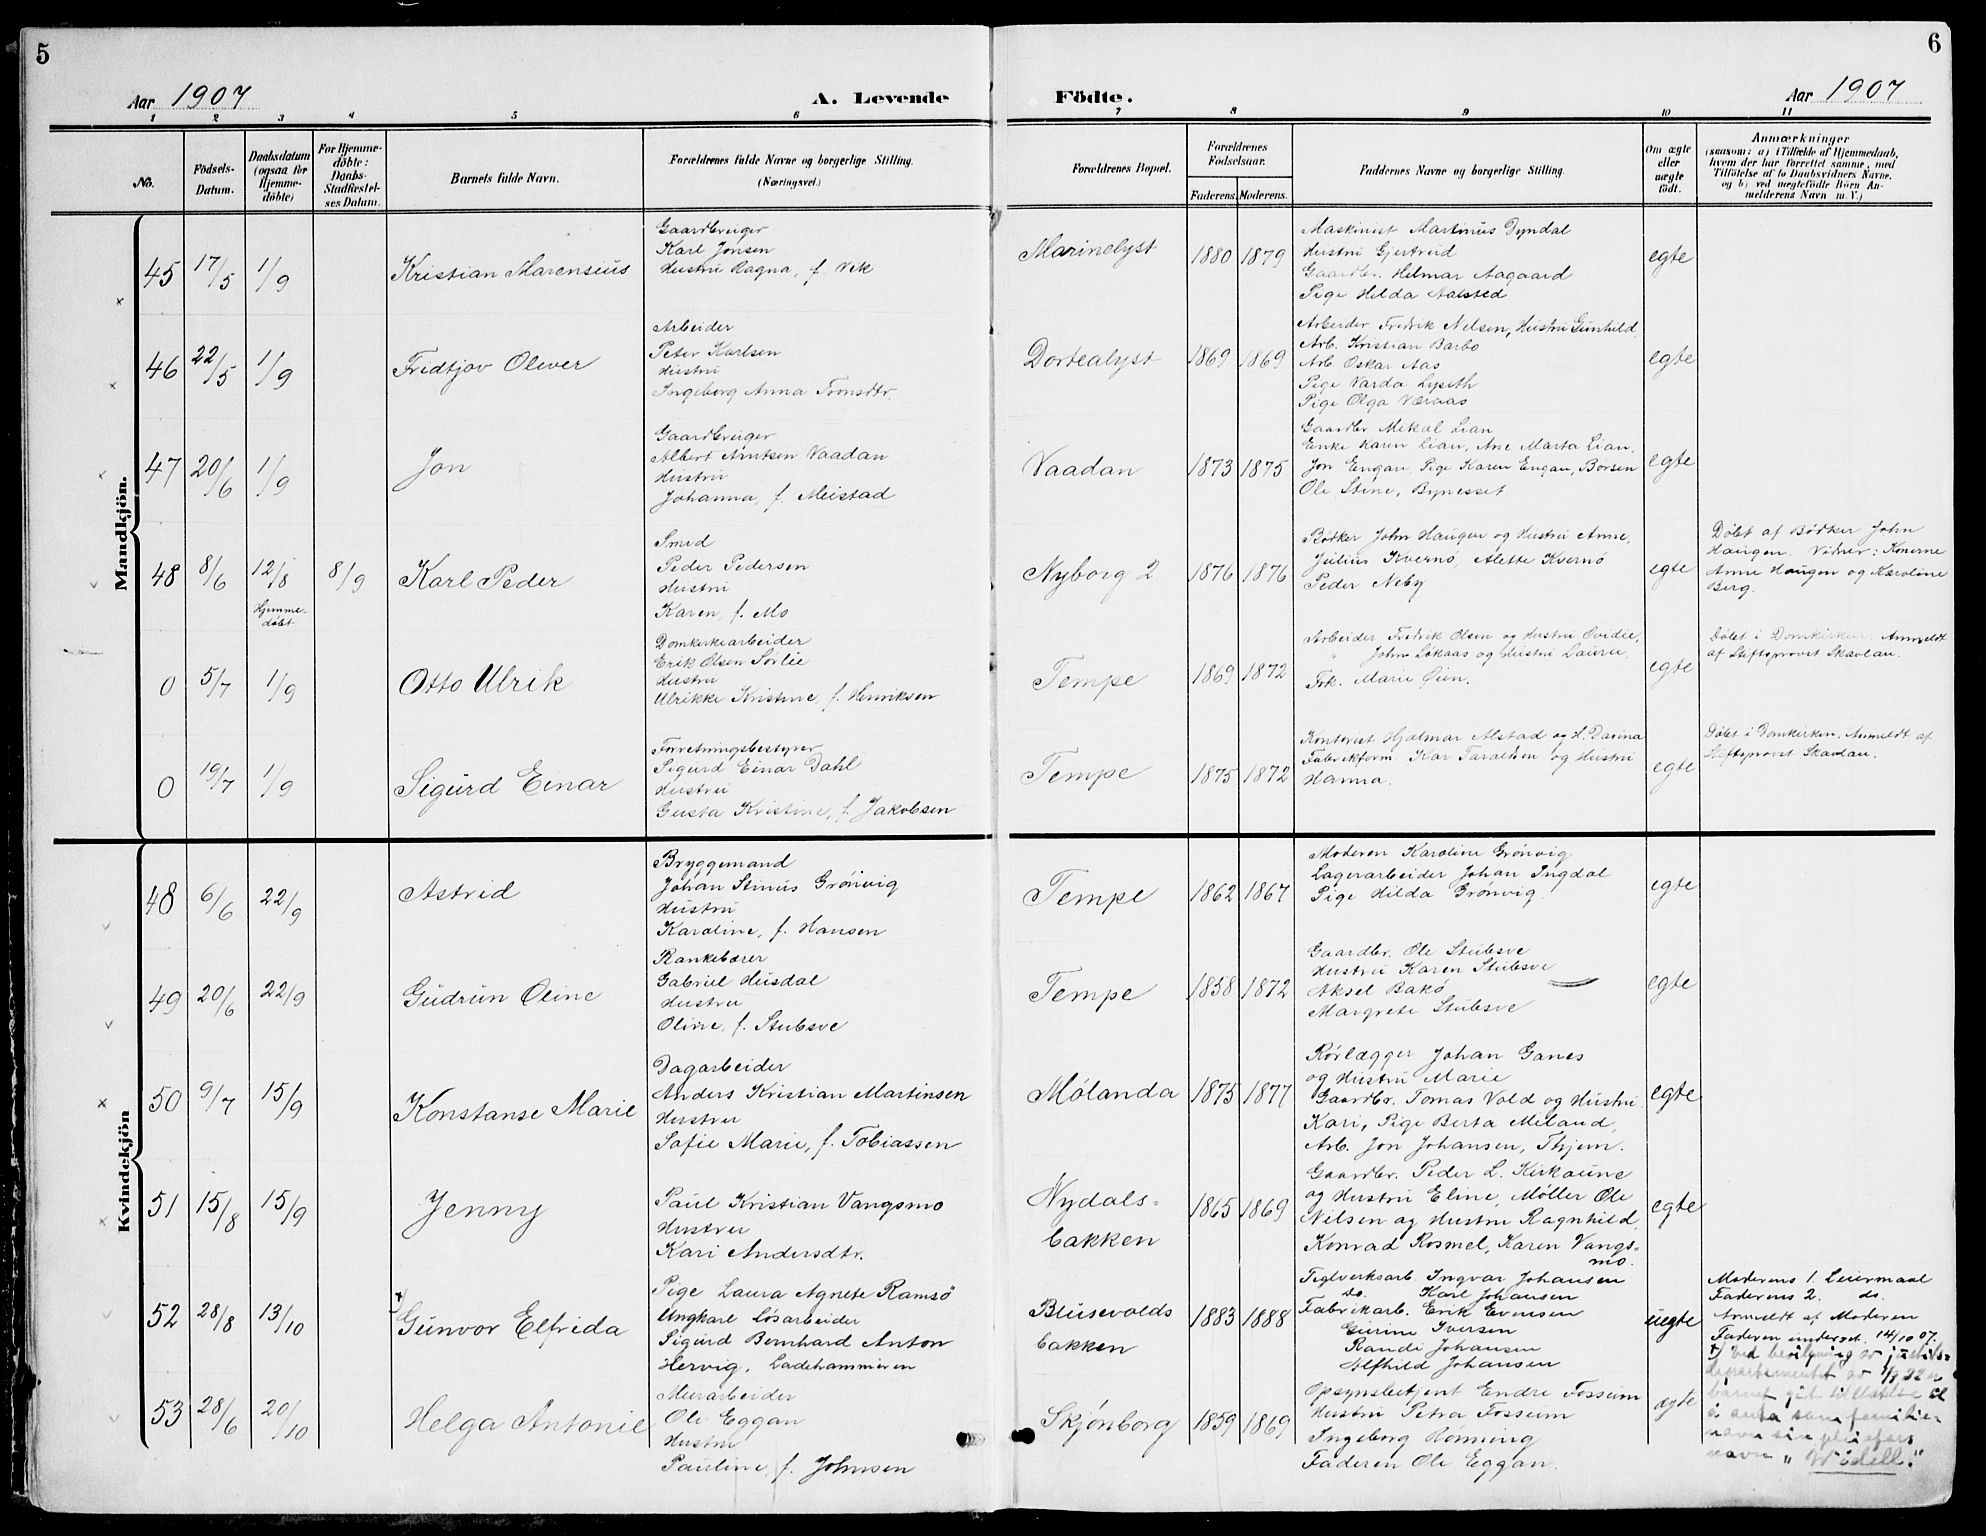 5
6
Aar 1907
A. Levende
Födte.
Aar 1907
1 2 3 4 5 6 7 8 9 10 11
No.
Födsels-Datum.
Daabsdatum (ogsaa for Hjemme-döbte)
For Hjemme-döbte: Daabs-Stadfæstel-ses Datum.
Barnets fulde Navn.
Forældrenes fulde Navne og borgerlige Stilling.
(Næringsvei.)
Forældrenes Bopæl.
Forældrenes Födselsaar.
Faderens. Moderens.
Faddernes Navne og borgerlige Stilling.
Om ægte eller uægte födt.
Anmærkninger
(saasom: a) i Tilfælde af Hjemmedaab,
hvem der har forrettet samme, med
Tilföielse af to Daabsvidners Navne,
og b) ved uægtefödte Börn An-
melderens Navn m. V.)
Mandkjön.
45 17/5 1/9 Kristian Marensius
Gaardbruger
Karl Jonsen
Hustru Ragna, f. Vik
Marinelyst 1880 1879
Maskinist Martinus Dyndal
Hustru Gjertrud
Gaardbr. Helmar Aagaard
Pige Hilda Aalsted
egte
46 22/5 1/9 Fridtjov Oliver
Arbeider
Peter Karlsen
Hustru
Ingeborg Anna Tronsdtr.
Dortealyst 1869 1869
Arbeider Fredrik Nelsen, Hustru Gunhild
Arb. Kristian Barbo
Arb. Oskar Aas
Pige Varda Lyseth
Pige Olga Væraas
egte
47 20/6 1/9 Jon
Gaardbruger
Albert Arntsen Vaadan
Hustru
Johanna, f. Meistad
Vaadan 1873 1875
Gaardbr. Mekal Lian
Enke Karen Lian, Ane Marta Lian,
Jon Engan, Pige Karen Engan, Børsen
Ole Stene, Bynesset.
egte
48 8/6 12/8 Hjemme-døbt 8/9 Karl Peder
Smed
Peder Pedersen
Hustru
Karen, f. Mo
Nyborg 2 1876 1876
Bødker John Haugen og Hustru Anne,
Julius Kvernø, Alette Kvernø
Peder Neby
egte
Døbt af Bødker John
Haugen. Vidner: Konerne
Anne Haugen og Karoline
Berg.
0 5/7 1/9 Otto Ulrik
Domkirkearbeider
Erik Olsen Sørlie
Hustru
Ulrikke Kristine, f. Henriksen
Tempe 1869 1872
Arbeider Fredrik Olsen og Hustru Ovidie,
" John Løkaas og Hustru Laura,
Frk. Marie Øien.
egte
Døbt i Domkirken. Anmeldt
af Stiftsprovst Skavlan.
0 19/7 1/9 Sigurd Einar
Forretningsbestyrer
Sigurd Einar Dahl
Hustru
Gusta Kristine, f. Jakobsen
Tempe 1875 1872
Kontorist Hjalmar Alstad og H. Davina
Fabrikform. Kar Taraldsen og Hustru
Hanna.
egte
Døbt i Domkirken. Anmeldt af
Stiftsprovst Skavlan.
Kvindekjön
48 6/6 22/9 Astrid
Bryggemand
Johan Stinus Grönvig
Hustru
Karoline, f. Hansen
Tempe 1862 1867
Moderen Karoline Grönvig
Lagerarbeider Johan Ingdal
Pige Hilda Grönvig
egte
49 20/6 22/9 Gudrun Oline
Gabriel Husdal
Hustru
Oline, f. Stubsve
Tempe 1858 1872
Gaardbr. Ole Stubsve
Hustru Karen Stubsve
Aksel Bakø
Margrete Stubsve
egte
50 9/7 15/9 Konstanse Marie
Dagarbeider
Anders Kristian Martinsen
Hustru
Sofie Marie, f. Tobiassen
Mølanda 1875 1877
Rørlægger Johan Ganes
og Hustru Marie
Gaardbr. Tomas Vold og Hustru
Kari, Pige Berta Meland,
Arb. Jon Johansen, Thjem.
egte
51 15/8 15/9 Jenny
Paul Kristian Vangsmo
Hustru
Kari Andersdtr.
Nydals-
bakken
1865 1869
Gaardbr. Peder L. Kirkaune
og Hustru Eline, Møller Ole
Nilsen og Hustru Ragnhild,
Konrad Rosmel, Karen Vangs-
mo.
egte
52 28/8 13/10 Gunvor Elfrida
Pige Laura Agnete Ramsö
Ungkarl Løsarbeider
Sigurd Bernhard Anton
Hervig, Ladehammeren
Blusevolds
bakken
1883 1888
Teglverksarb. Ingvar Johansen
do. Karl Johansen
Fabrikarb. Erik Evensen
Gurine Iversen
Randi Johansen
Alfhild Johansen
uegte
Moderens 1. Leiermaal
Faderens 2. do.
Anmeldt af Moderen
Faderen underret. 14/10 07.
+) Ved bevilgning av justits-
departementet av 1/7 22 er
barnet git tillatelse til
å anta som familie-
navn sin pleiefars
navn "Widell".
53 28/6 20/10 Helga Antonie
Murarbeider
Ole Eggan
Hustru
Pauline, f. Johnsen
Skjønborg 1859 1869
Opsynsbetjent Endre Fossum
Hustru Petra Fossum
Ingeborg Rønning
Faderen Ole Eggan.
ægte